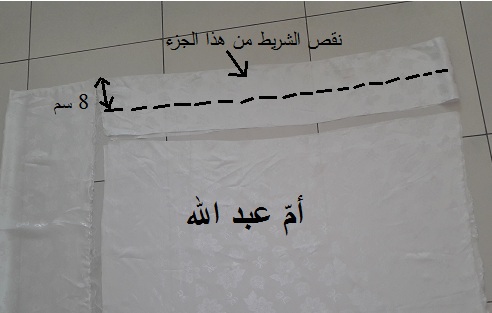 نقص الشريط من هذا الجزء
8 سم
أمّ عبد الله